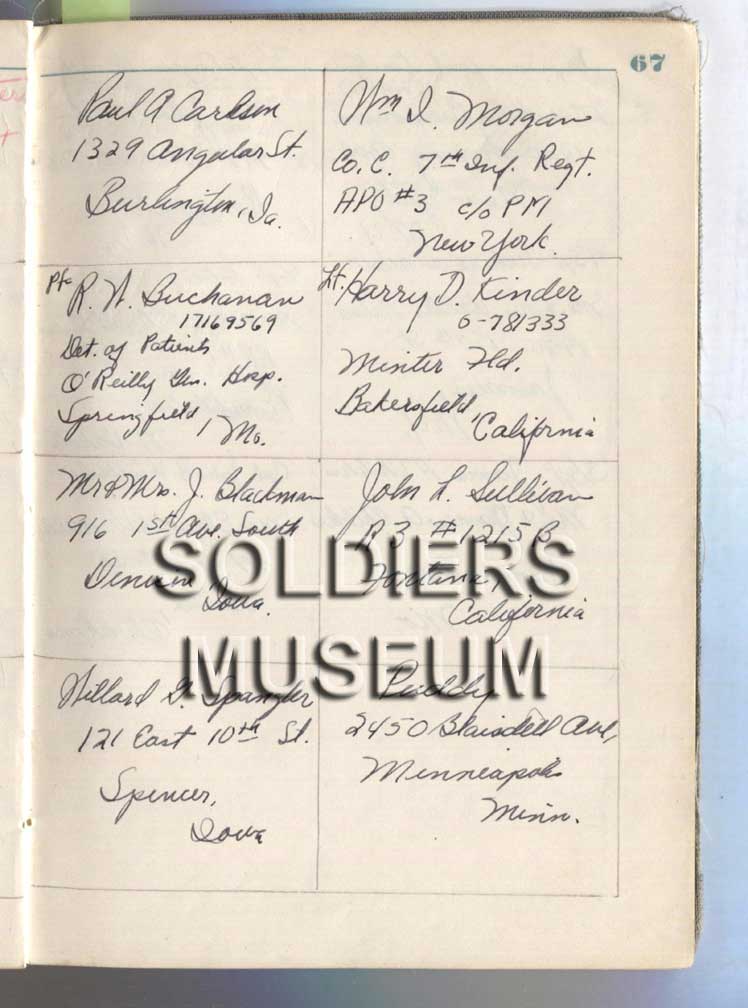 67
Paul A Carlson
1329 Angular St.
Burlington, Ia.
Wm I. Morgan
Co. C. 7th Inf. Regt.
APO #3 c/o PM
New York.
Pfc R. W. Buchanan
17169569
Det. of Patients
O'Reilly Gen. Hosp.
Springfield, Mo.
Lt. Harry D. Kinder
O-781333
Minter Fld.
Bakersfield, California
Mr & Mrs. J. Blackman
916 1st Ave. South
Iowa.
John L. Sullivan
R 3 #1215 B
Fontana,
California
Willard G. Spangler
121 East 10th St.
Spencer,
Iowa
2450 Blaisdell Ave,
Minneapolis
Minn.
SOLDIERS
MUSEUM